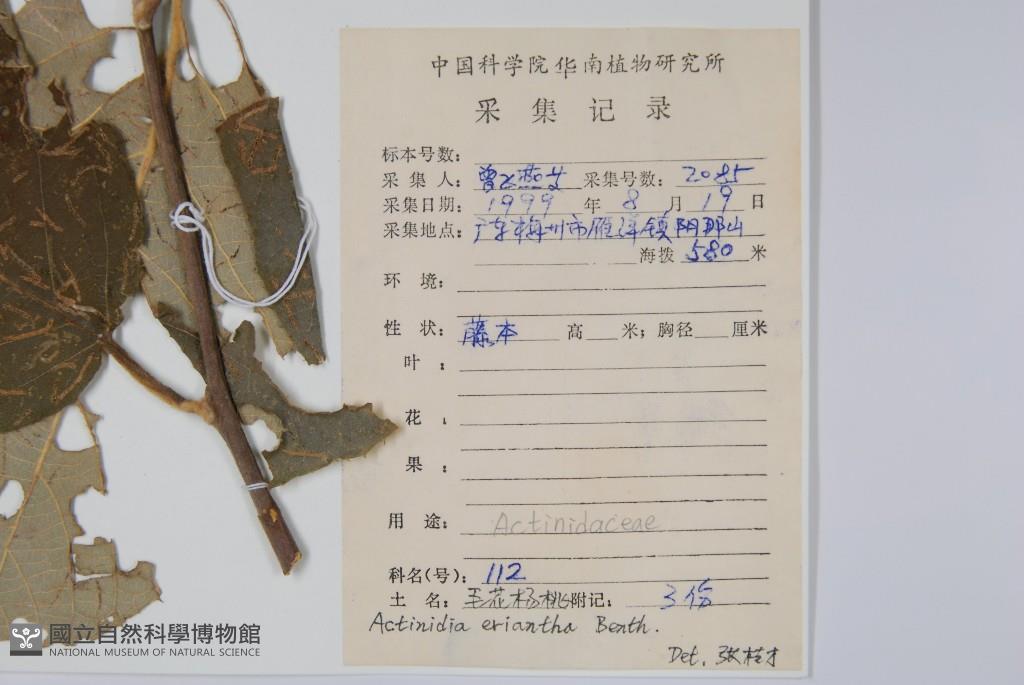 中国科学院华南植物研究所
采集记录
标本号数：
采集人：曾飞燕 采集号数：2085
采集日期：1999 年 8 月 19 日
采集地点：广东梅州市雁洋镇阴那山
海拨 580 米
环境：
性状：藤本 高 米；胸径 厘米
叶：
花：
果：
用途：Actinidaceae
科名(号)：112
土名：毛花杨桃 附记：3份
Actinidia eriantha Benth.
Det. 张桂才
國立自然科學博物館
NATIONAL MUSEUM OF NATURAL SCIENCE